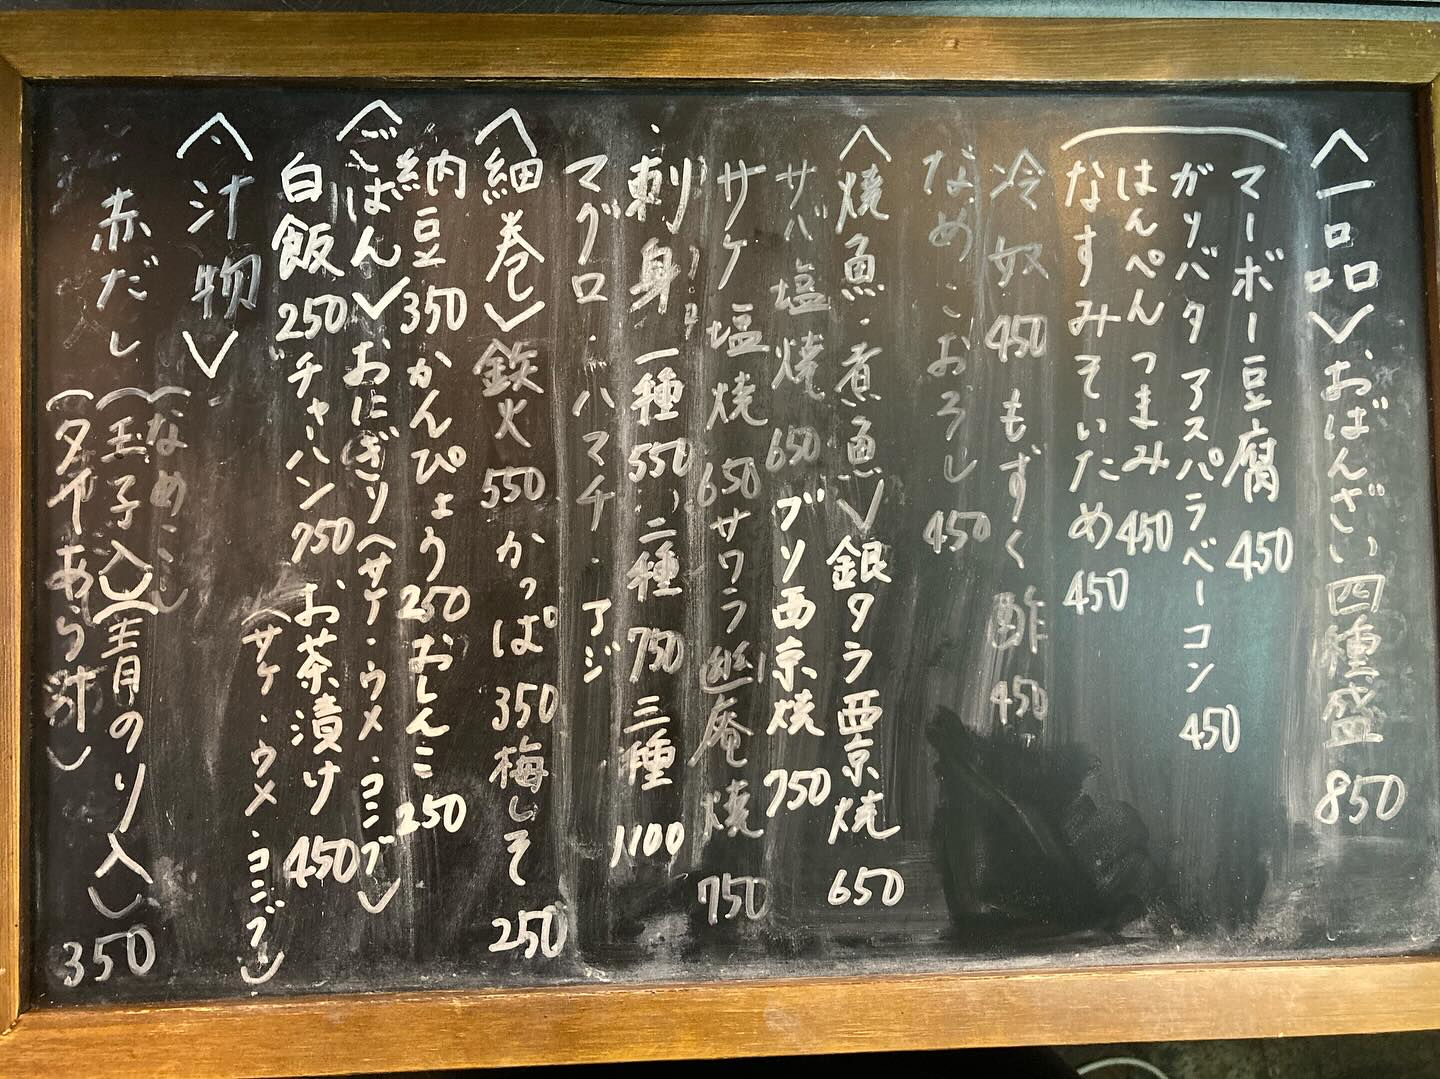 〈一品〉おばんざい四種盛 850
マーボー豆腐 450
ガリバタ アスパラベーコン 450
はんぺんつまみ 450
なすみそいため 450
冷奴 450 もずく酢 450
なめこおろし 450
〈焼魚・煮魚〉銀タラ西京焼 650
サバ塩焼 650 ブリ西京焼 750
サケ塩焼 650 サワラ幽庵焼 750
刺身 一種 550 二種 750 三種 1100
マグロ・ハマチ・アジ
〈細巻〉鉄火 550 かっぱ 350 梅しそ 250
納豆 350 かんぴょう 250 おしんこ 250
〈ごはん〉おにぎり(サケ・ウメ・コンブ)
白飯 250 チャーハン 750 お茶漬け 450
(サケ・ウメ・コンブ)
〈汁物〉
赤だし
(なめこ
(玉子入)(青のり入)
(タイあら汁)
350